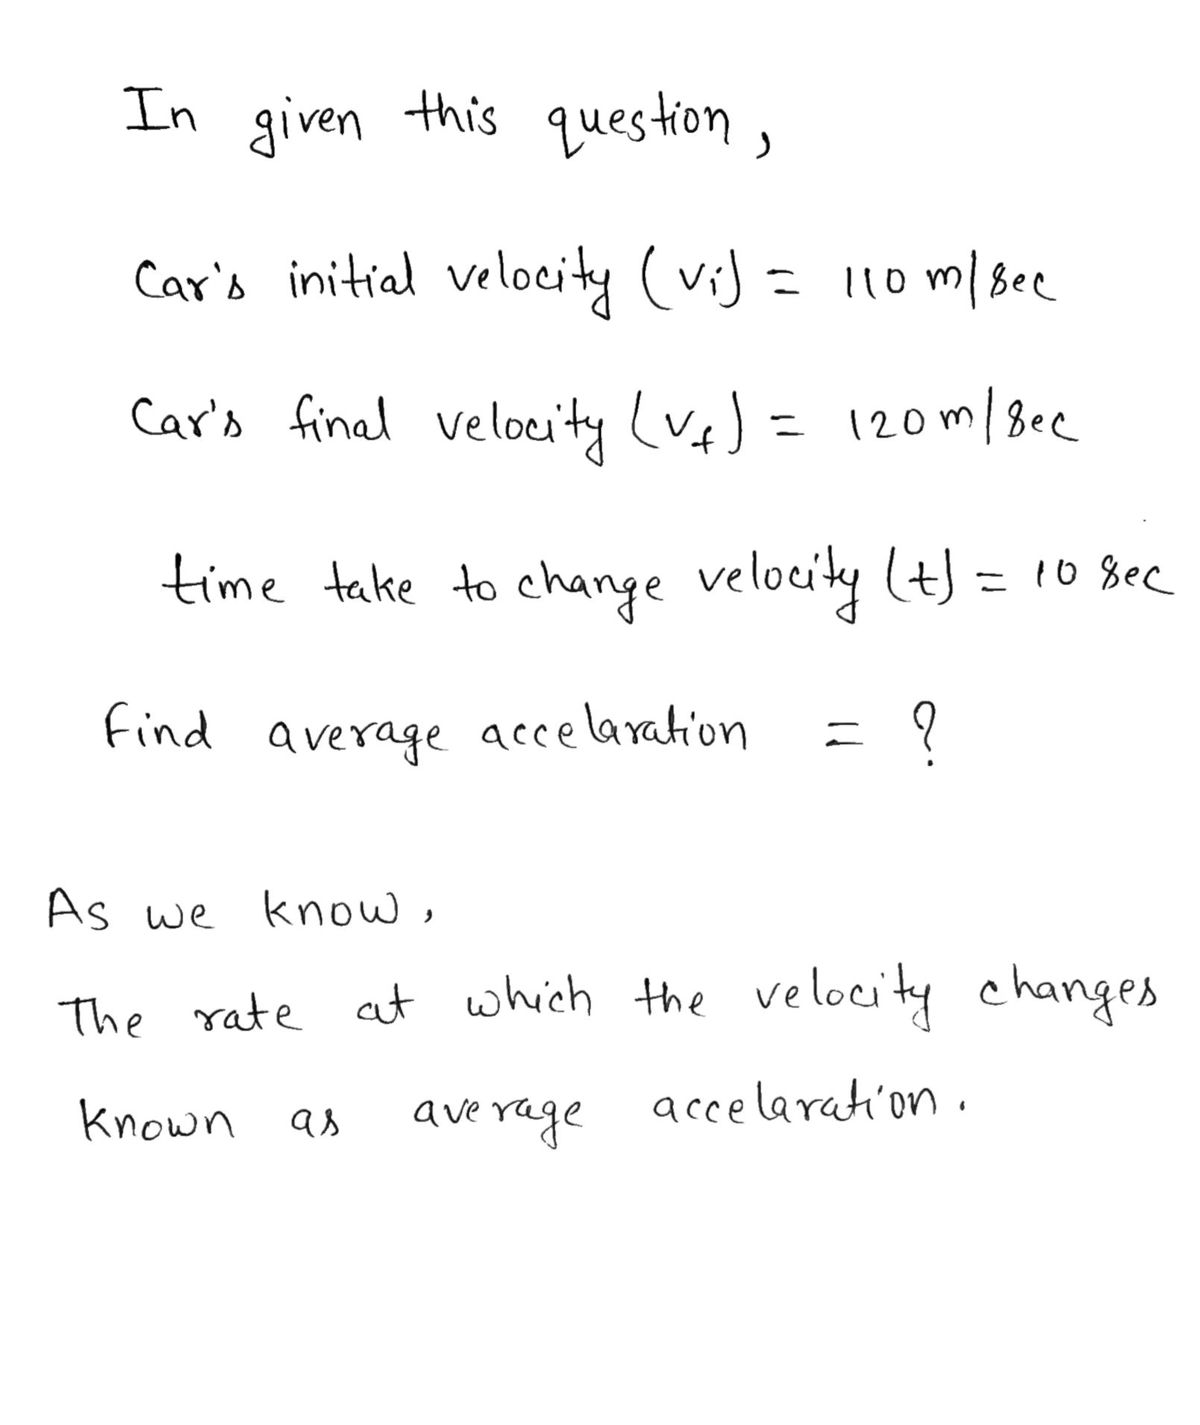 In given this question,
Car's initial velocity (vi) = 110 m/sec
Car's final velocity (vf) = 120 m/sec
time take to change velocity (t) = 10 sec
Find average accelaration = ?
As we know,
The rate at which the velocity changes
known as average accelaration.